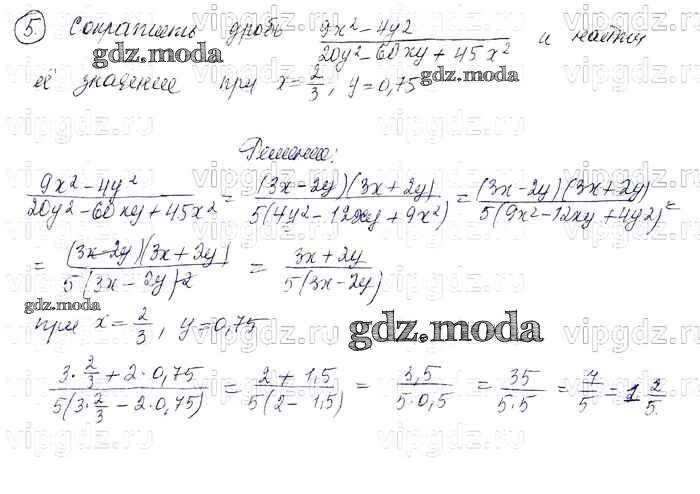 5. Сократить дробь (9x² - 4y²)/(20y² - 60xy + 45x²) и найти
gdz.moda gdz.moda
её значение при x = 2/3, y = 0,75
vipgdz.ru vipgdz.ru
Решение:
(9x² - 4y²)/(20y² - 60xy + 45x²) = (3x - 2y)(3x + 2y)/5(4y² - 12xy + 9x²) = (3x - 2y)(3x + 2y)/5(9x² - 12xy + 4y2) =
= (3x - 2y)(3x + 2y)/5(3x - 2y)2 = (3x + 2y)/5(3x - 2y)
gdz.moda
при x = 2/3, y = 0,75
gdz.moda
(3·2/3 + 2·0,75)/5(3·2/3 - 2·0,75) = (2 + 1,5)/5(2 - 1,5) = 3,5/5·0,5 = 35/5·5 = 7/5 = 1 2/5.
vipgdz.ru vipgdz.ru